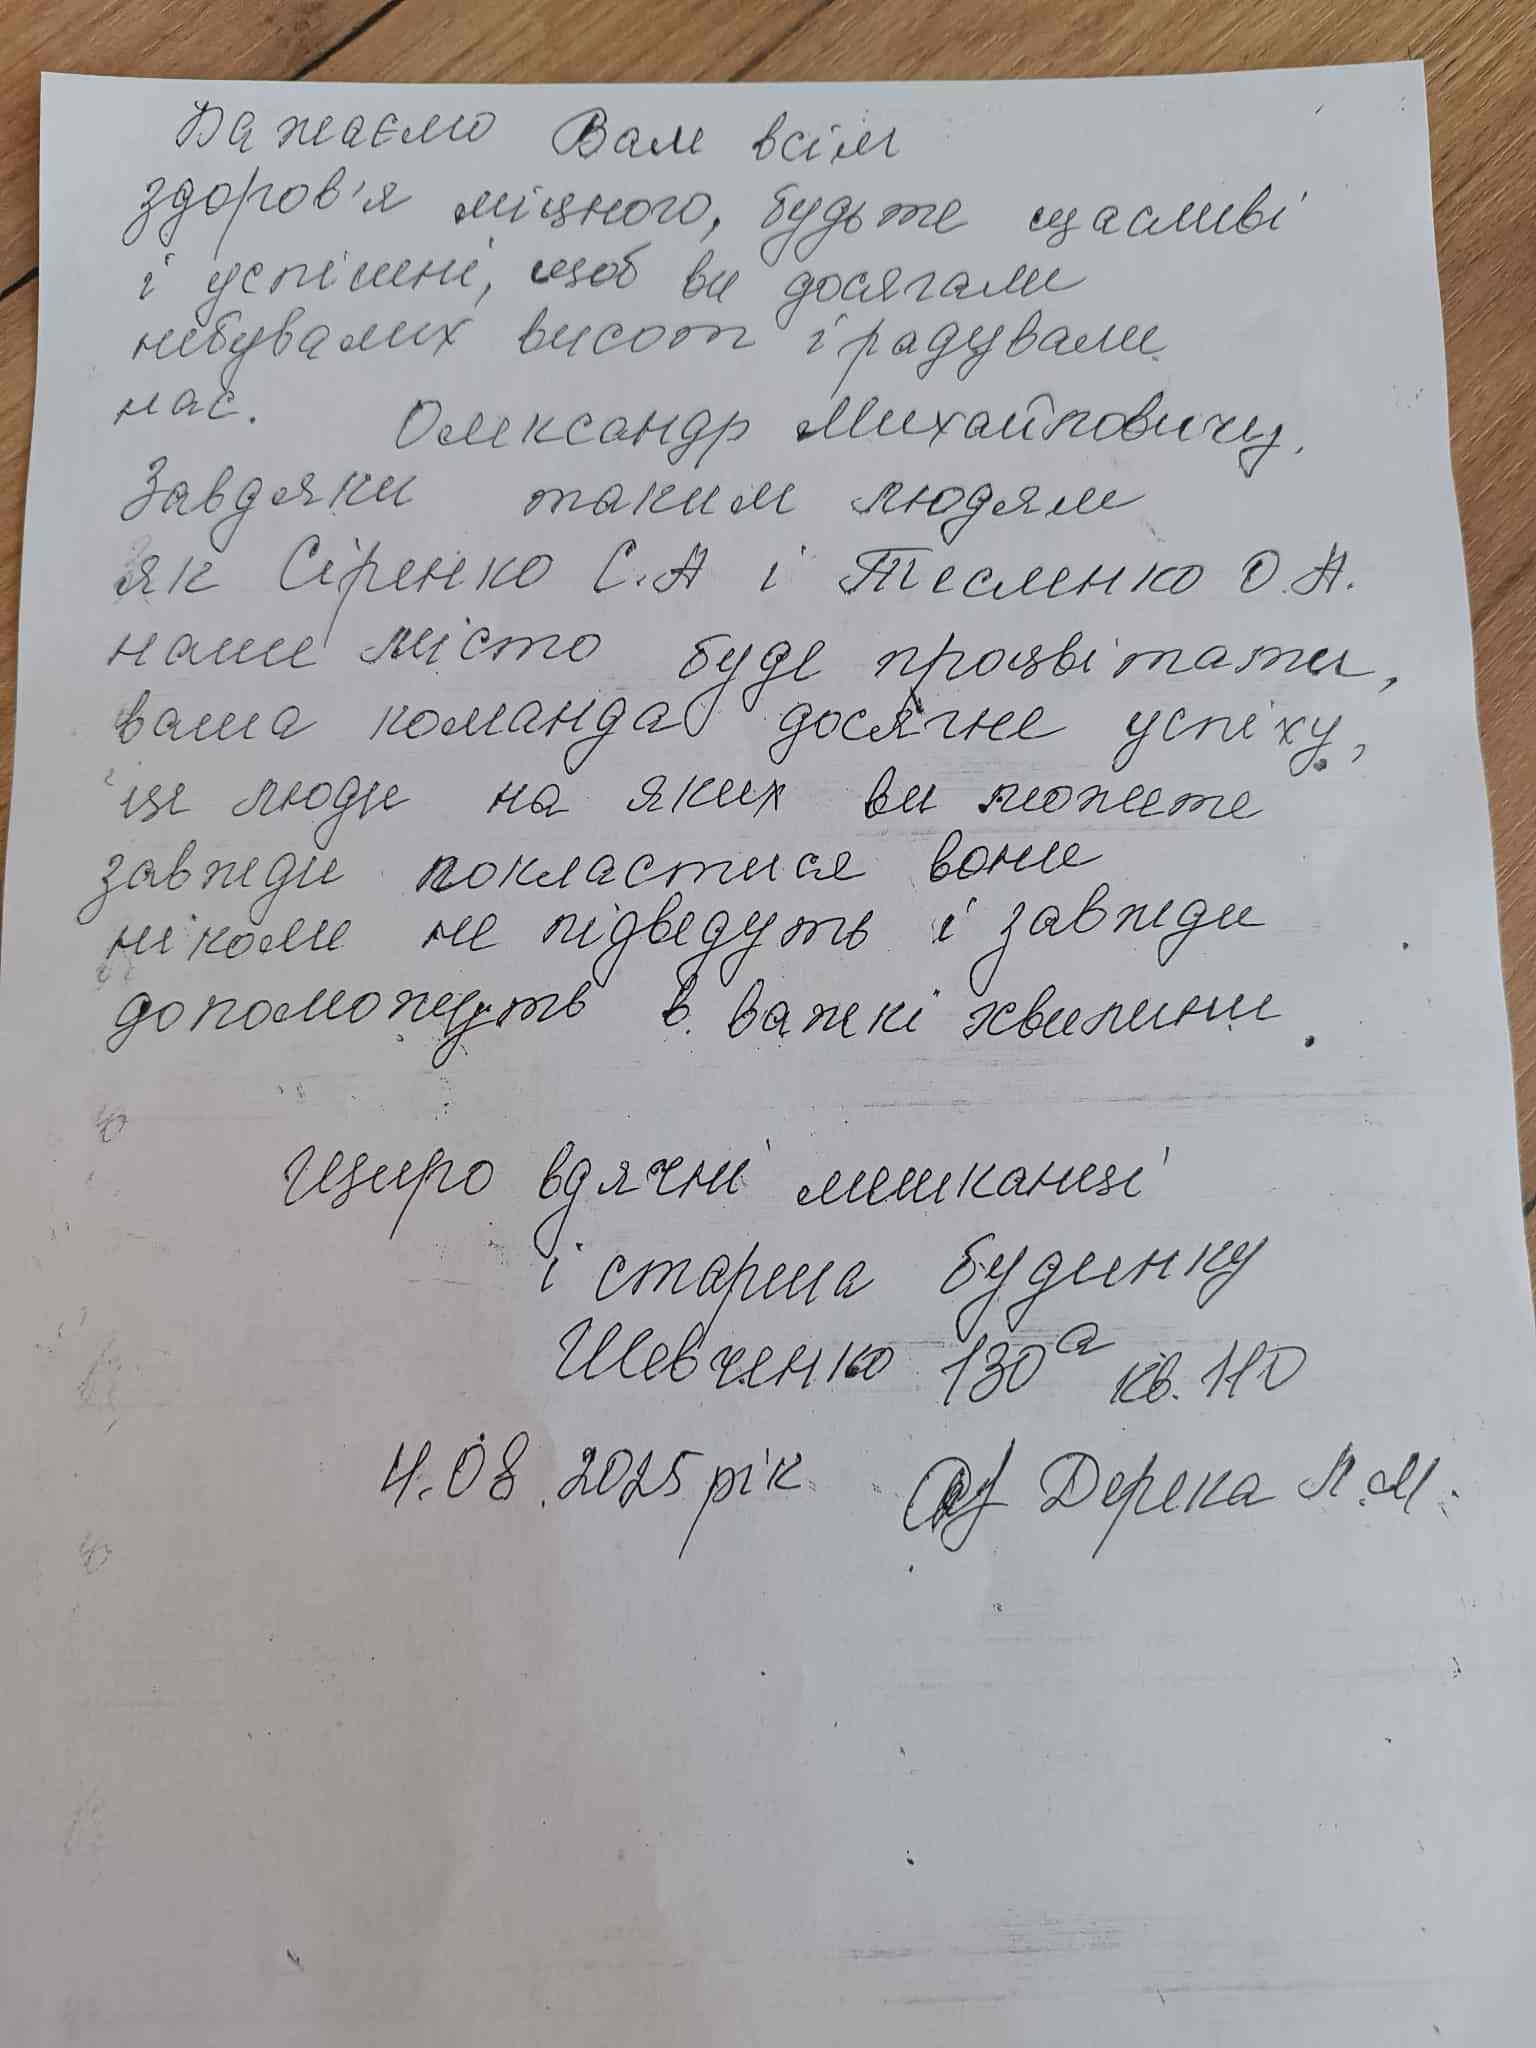 Бажаємо Вам всім
здоров'я міцного, будьте щасливі
і успішні, щоб ви досягали
небувалих висот і радували
нас. Олександр Михайловичу,
Завдяки таким людям
як Сіренко С.А і Тесленко О.А.
наше місто буде процвітати,
ваша команда досягне успіху,
це люди на яких ви можете
завжди покластися вони
ніколи не підведуть і завжди
допоможуть в важкі хвилини.
Щиро вдячні мешканці
і старша будинку
Шевченко 130а кв. 110
4.08.2025 рік Дерека Л.М.